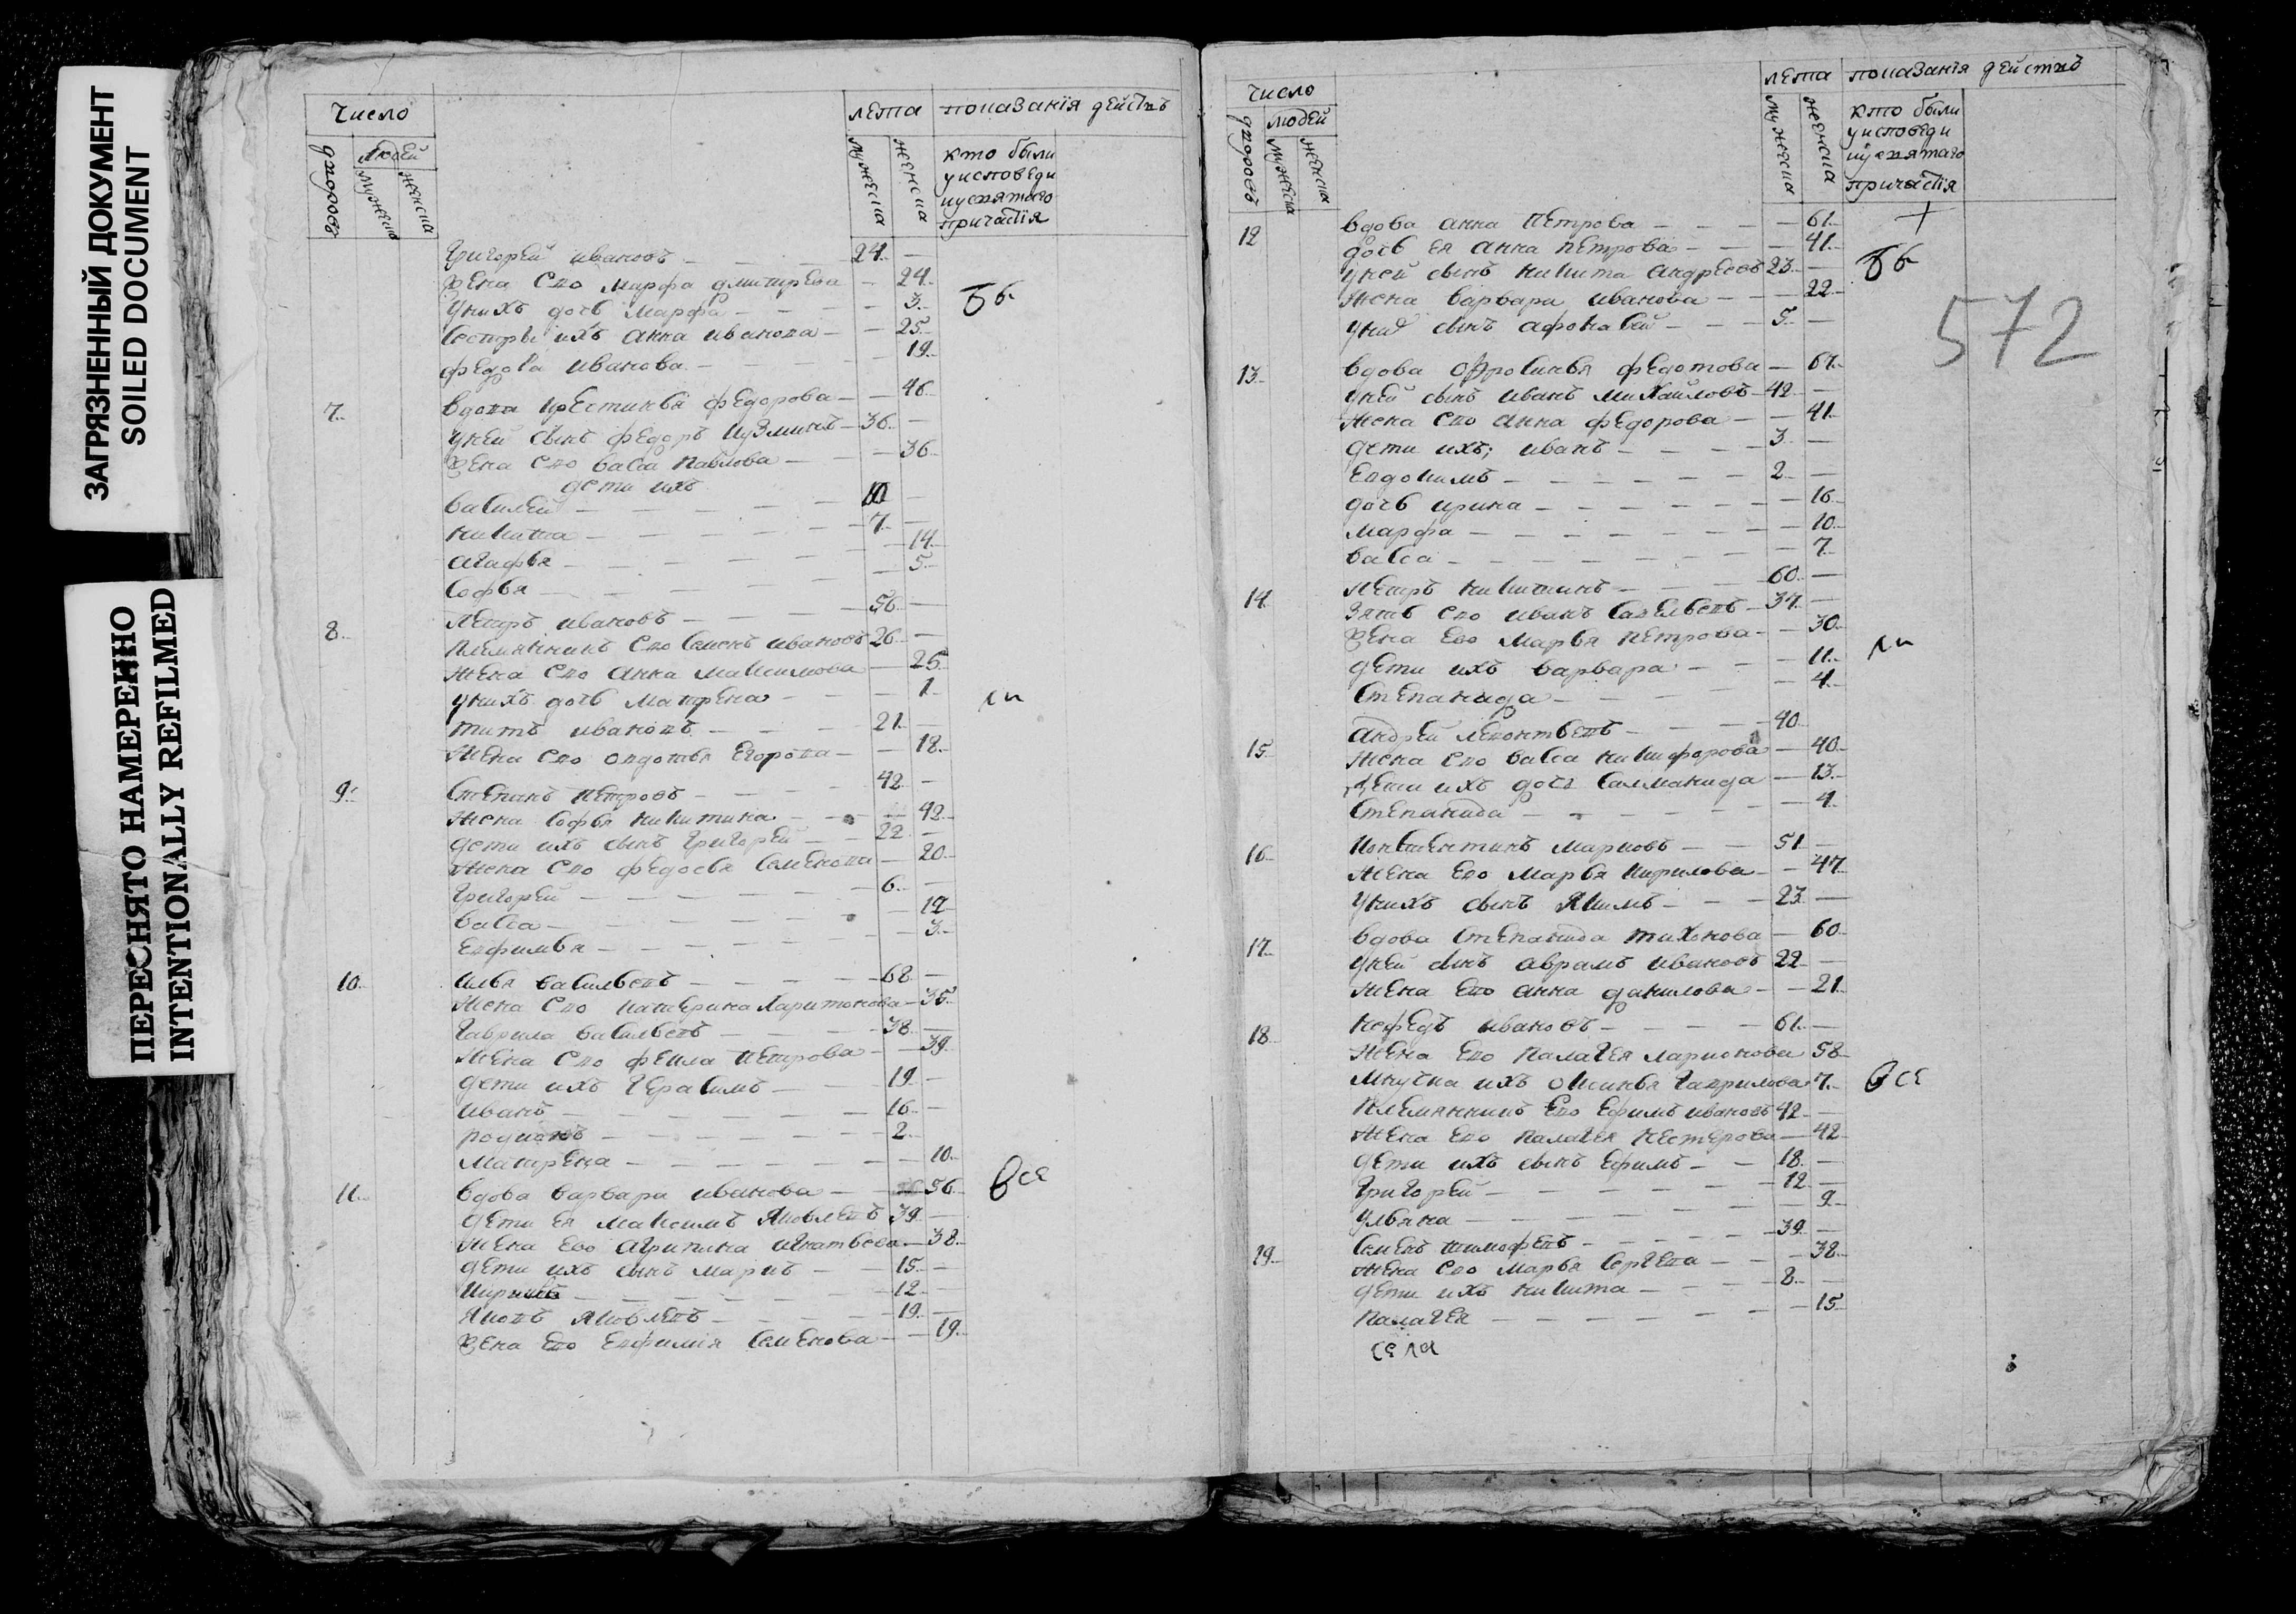 ЗАГРЯЗНЕННЫЙ ДОКУМЕНТ
SOILED DOCUMENT
ПЕРЕСНЯТО НАМЕРЕННО
INTENTIONALLY REFILMED
Число
лета показанїя действъ
дворовъ
людей
мужеска
женска
мужеска
женска
кто были
уисповеди
иусвятаго
причастїя
Григорей ивановъ 24
жена ево марфа дмитрева 24
унихъ дочь марфа 3
бб
сестры ихъ анна иванова 25
федосья иванова 19
7 вдова кристинья федорова 46
уней сынъ федоръ кузминъ 36
жена ево васса павлова 36
дети ихъ
василей 10
никита 7
агафья 14
софья 5
8 петръ ивановъ 56
племянникъ ево семенъ ивановъ 26
жена ево анна максимова 25
унихъ дочь матрена 1
титъ ивановъ 21
жена ево овдотья егорова 18
9 степанъ петровъ 42
жена софья никитина 42
дети ихъ сынъ григорей 22
жена ево федосья семенова 20
григорей 6
васса 12
евфимья 3
10 илья васильевъ 68
жена ево катерина харитонова 35
гаврила васильевъ 38
жена ево фекла петрова 39
дети ихъ герасимъ 19
иванъ 16
родионъ 2
матрена 10
11 вдова варвара иванова 56
все
дети ея максимъ яковлевъ 39
жена ево агрипина игнатьева 38
дети ихъ сынъ маркъ 15
12
яковъ яковлевъ 19
жена ево евфимїя семенова 19
число
лета показанїя действъ
дворовъ
людей
мужеска
женска
мужеска
женска
кто были
уисповеди
иусвятаго
причастїя
572
12 вдова анна петрова 61 +
дочь ея анна петрова 41
уней сынъ никита андреевъ 23 бб
жена варвара иванова 22
сынъ афонасей 5
13 вдова офросинья федотова 67
уней сынъ иванъ михайловъ 42
жена ево анна федорова 41
дети ихъ; иванъ 3
евдокимъ 2
дочь ирина 16
марфа 10
васса 7
14 петръ никитинъ 60
зять ево иванъ савельевъ 37
жена ево марья петрова 30
дети ихъ варвара 11
степанида 4
15 андрей левонтьевъ 40
жена ево васса никифорова 40
дети ихъ дочь саламанида 13
степанида 4
16 констентинъ марковъ 51
жена ево марья кирилова 47
унихъ сынъ якимъ 23
17 вдова степанида тихонова 60
уней сынъ аврамъ ивановъ 22
жена ево анна данилова 21
18 нефедъ ивановъ 61
жена ево палагея ларионова 58
внучка ихъ оксинья гаврилова 7 все
племянникъ ево ефимъ ивановъ 42
жена ево палагея нестерова 42
дети ихъ сынъ ефимъ 18
григорей 12
ульяна 9
19 семенъ тимофевъ 39
жена ево марья сергева 38
дети ихъ никита 8
палагея 15
села